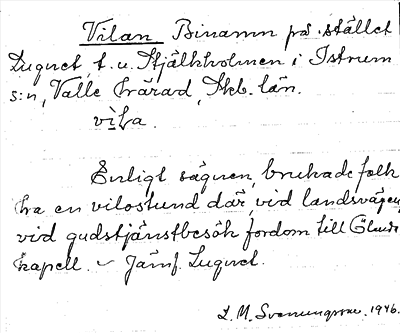 Vilan Binamn på stället
Luguet, t. u. Stjälkholmen i Istrum
s:n, Valle härad, Skb. län.
vi̱la.
Enligt sägnen, brukade folk
ha en vilostund där, vid landsvägen,
vid gudstjänstbesök fordom till Ölanda
kapell. ~ Jämf. Luguet.
L. M. Svenungsson. 1946.